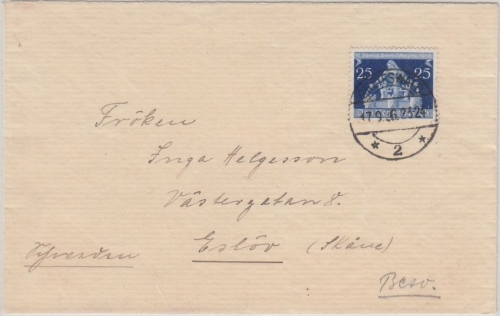 25 25
17.9.36.23-24
* 2 *
Fröken
Inga Helgesson
Västergatan 8.
Eslöv (Skåne)
Schweden
Besv.